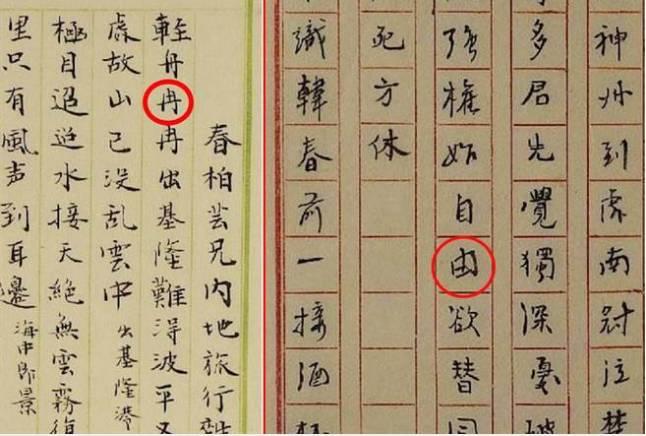 神州到處南冠泣楚
多君先覺獨深憂破
強權始自由欲替同
死方休
識韓春前一接酒
春柏芸兄内地旅行雜
輕舟冉冉出基隆難得波平又
處故山已沒乱雲中 出基隆港
極目迢迢水接天絕無雲霧復
里只有風声到耳邊 海中即景